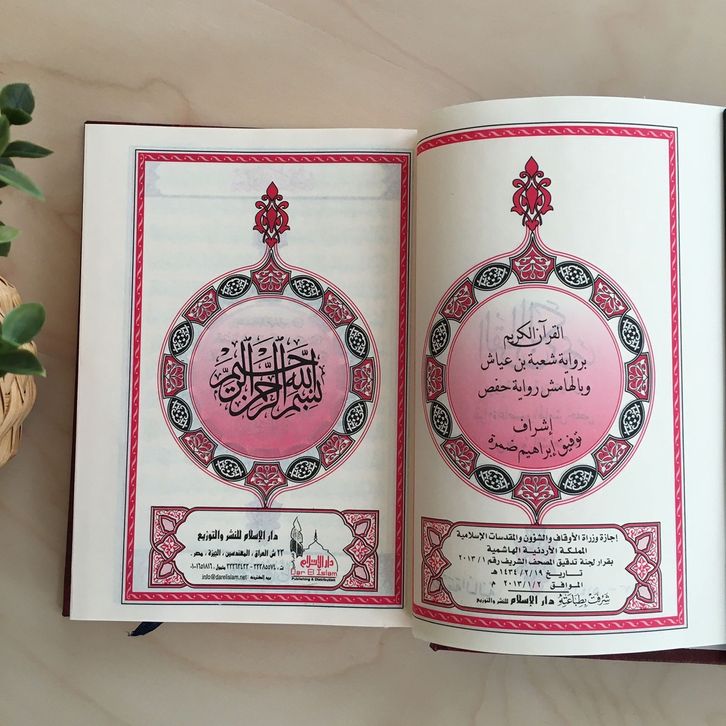 القرآن الكريم
برواية شعبة بن عياش
وبالهامش رواية حفص
إشراف
توفيق إبراهيم ضمرة
إجازة وزراة الأوقاف والشؤون والمقدسات الإسلامية
المملكة الأردنية الهاشمية
بقرار لجنة تدقيق المصحف الشريف رقم ٢٠١٣/١
تاريخ ١٤٣٤/٢/١٩ هـ
الموافق ٢٠١٣/١/٢ م
شرفت بطباعته دار الإسلام للنشر والتوزيع
بسم الله الرحمن الرحيم
دار الإسلام للنشر والتوزيع
٢٣ ش العراق، المهندسين، الجيزة، مصر.
info@dareislam.net
دار الإسلام
Dar El Islam
Publishing & Distribution